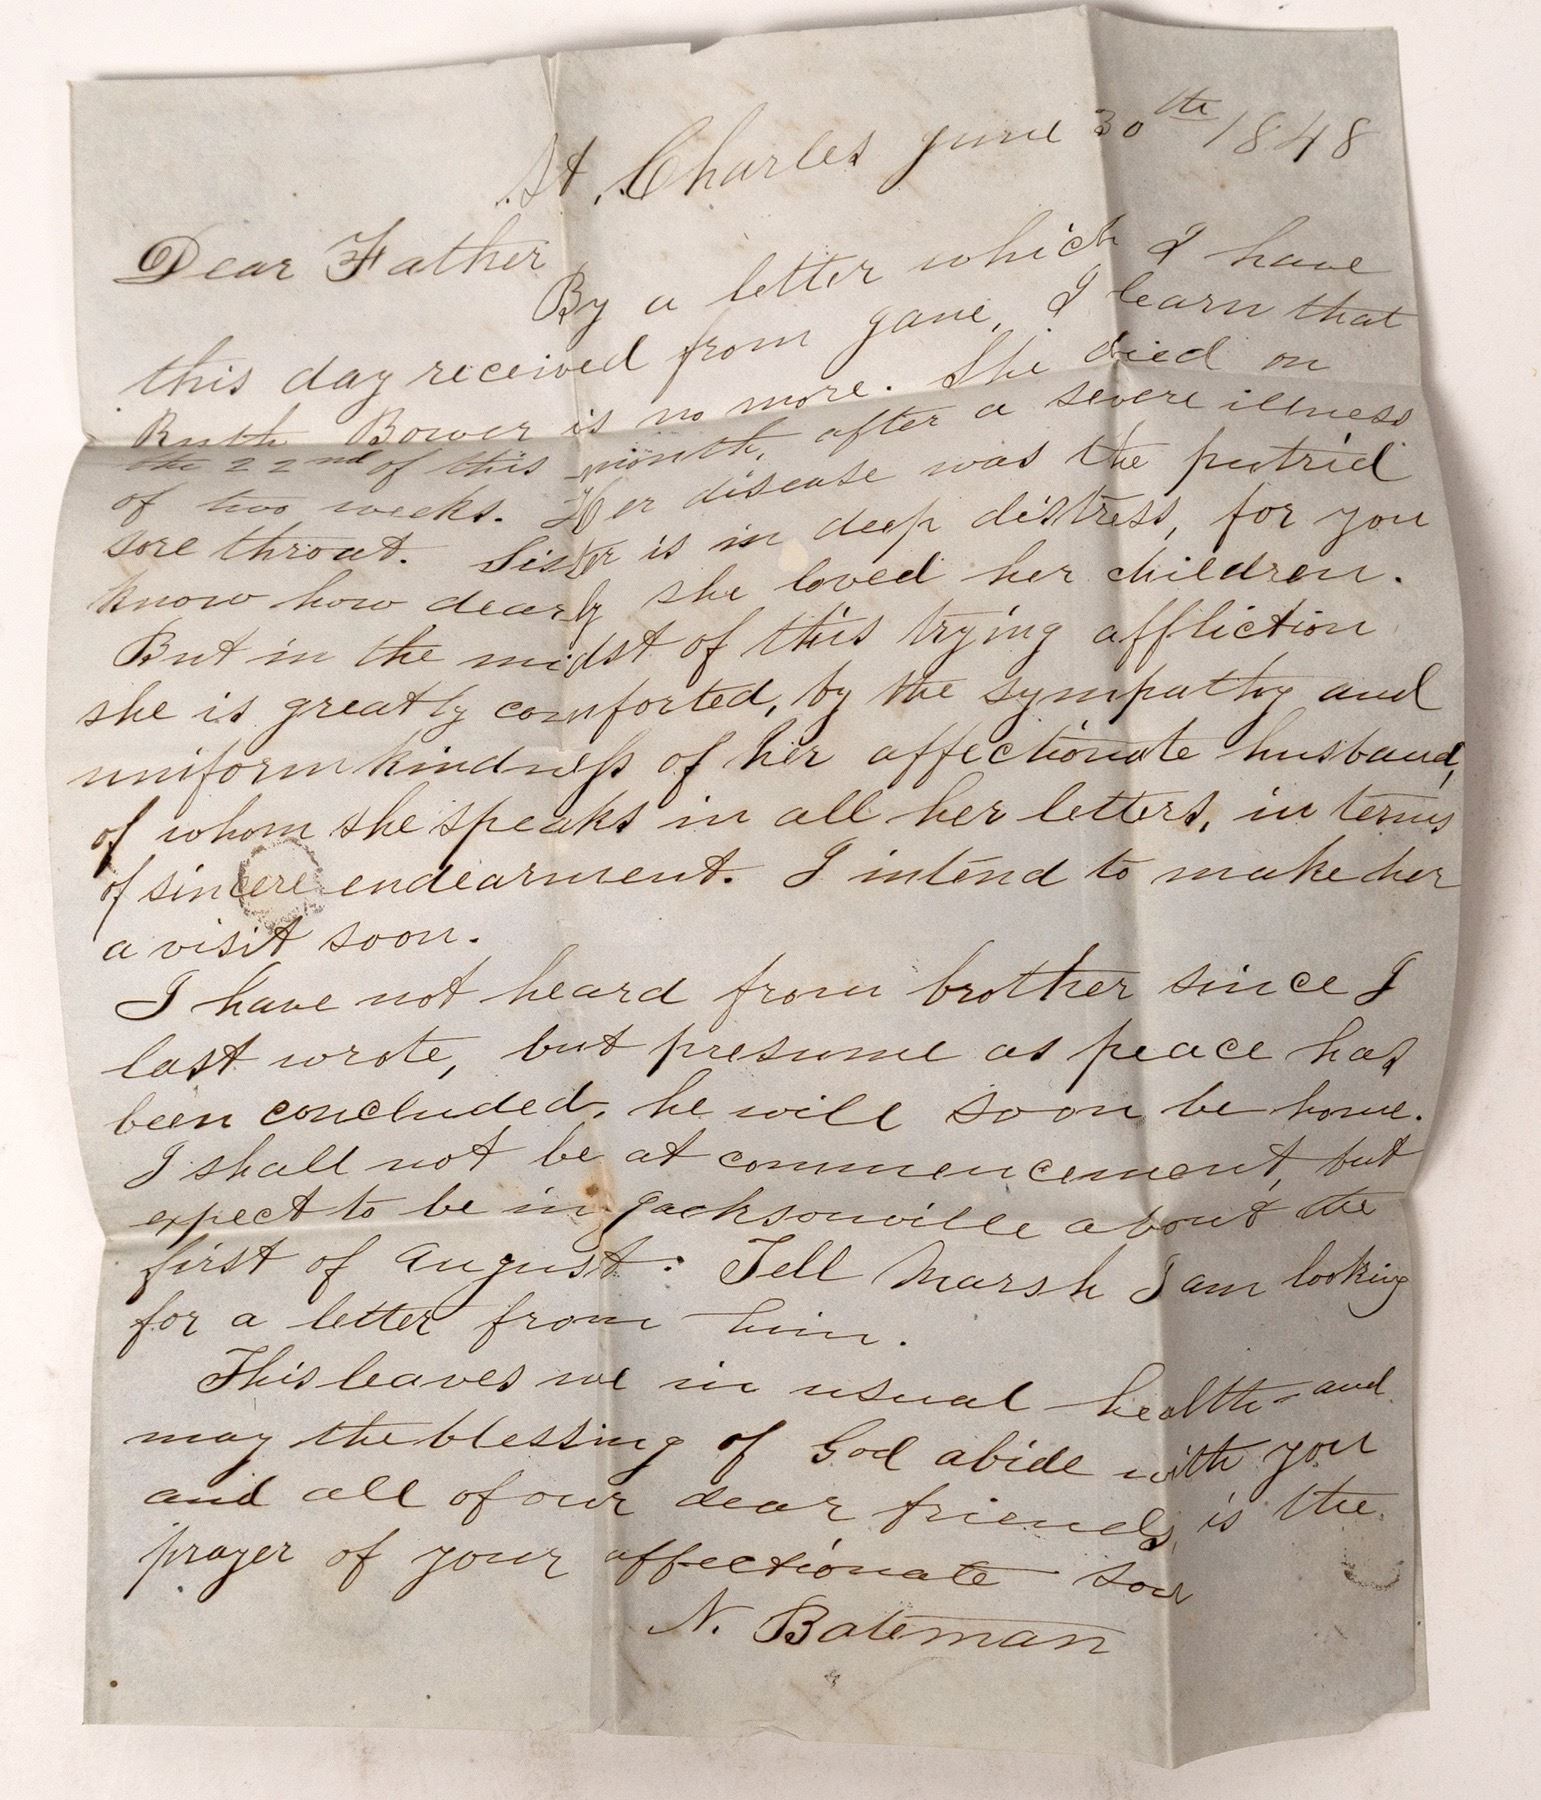 St. Charles June 30th 1848
Dear Father
By a letter which I have
this day received from Jane, I learn that
Ruth Bower is no more. She died on
the 22nd of this month, after a severe illness
of two weeks. Her disease was the putrid
sore throat. Sister is in deep distress, for you
know how dearly she loved her children.
But in the midst of this trying affliction
she is greatly comforted, by the sympathy and
uniform kindness of her affectionate husband,
of whom she speaks in all her letters, in terms
of sincere endearment. I intend to make her
a visit soon.
I have not heard from brother since I
last wrote, but presume as peace has
been concluded, he will soon be home.
I shall not be at commencement, but
expect to be in Jacksonville about the
first of August. Tell Marsh I am looking
for a letter from him.
This leaves me in usual health and
may the blessing of God abide with you
and all of our dear friends, is the
prayer of your affectionate son
N. Bateman